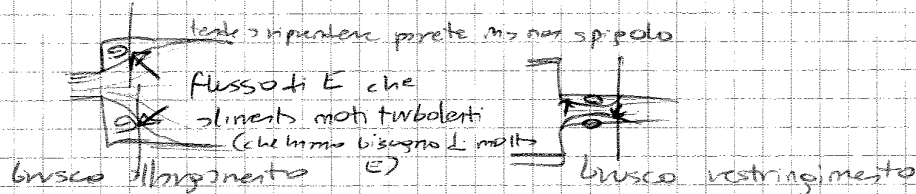 tende a riprendere parete ma non spigolo
flusso di E che
alimenta moti turbolenti
(che hanno bisogno di molta
E)
brusco allargamento
brusco restringimento